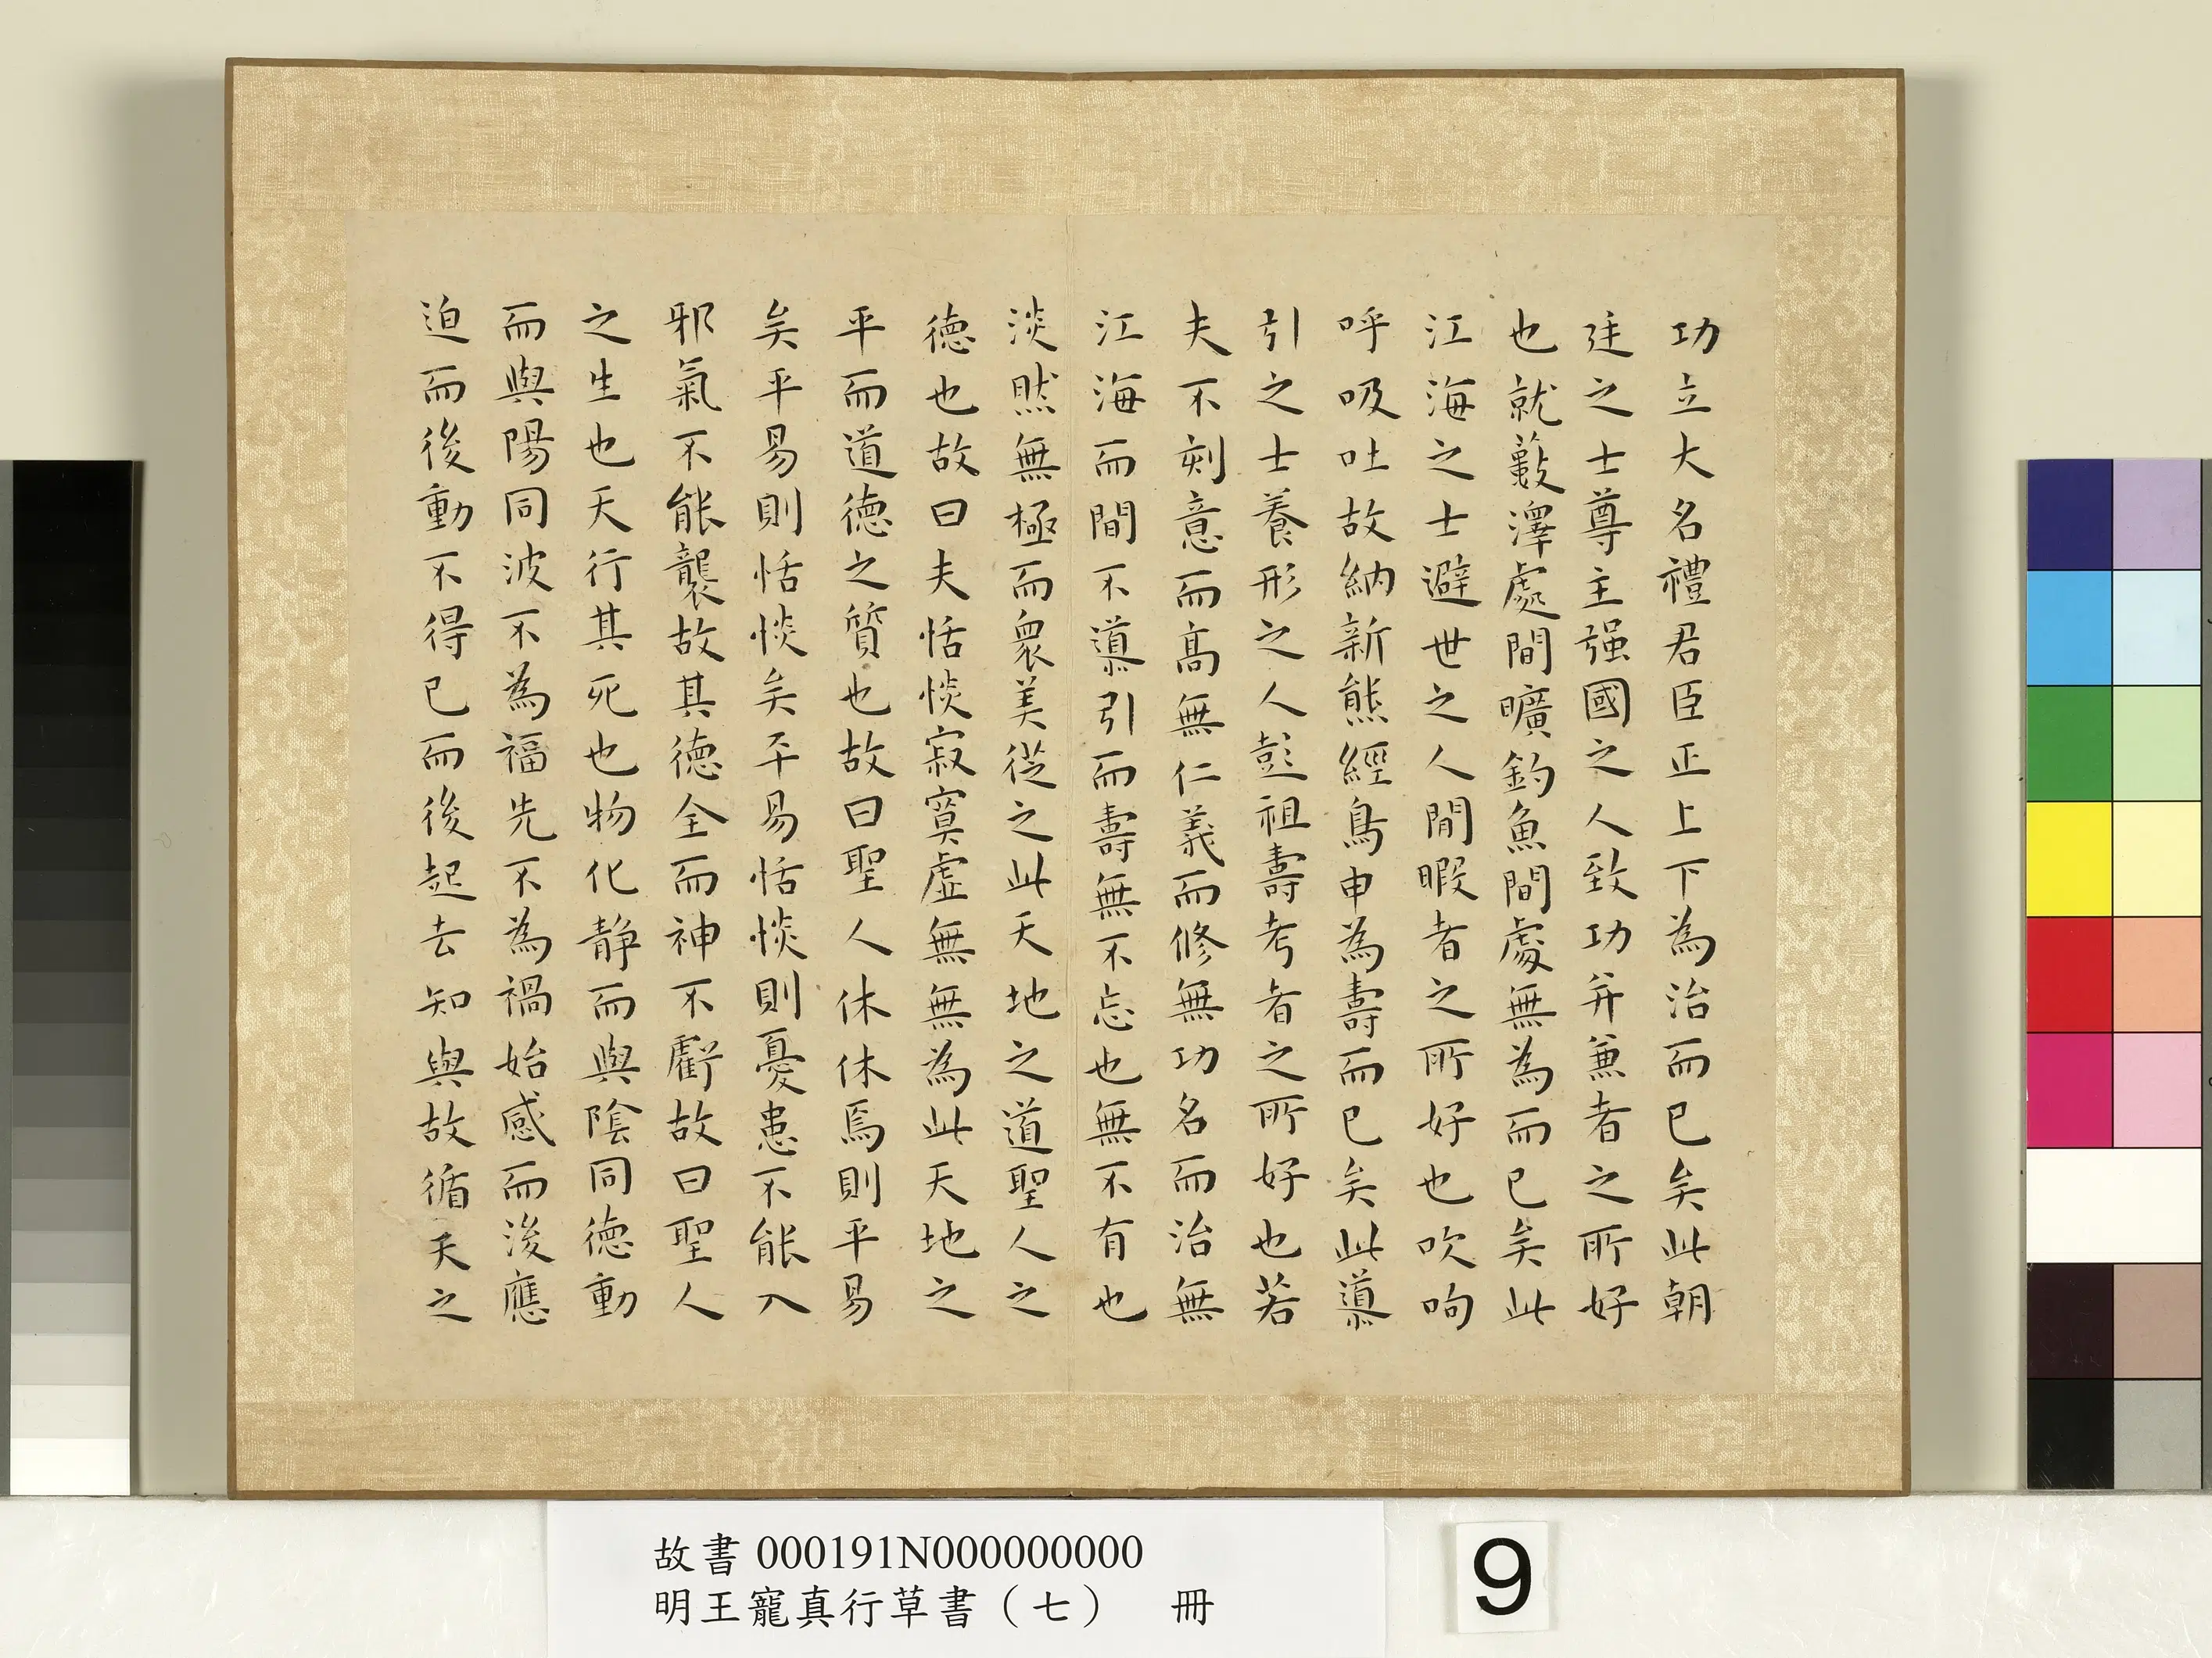 功立大名禮君臣正上下為治而已矣此朝
廷之士尊主强國之人致功并兼者之所好
也就藪澤處間曠釣魚間處無為而已矣此
江海之士避世之人閒暇者之所好也吹呴
呼吸吐故納新熊經鳥申為壽而已矣此導
引之士養形之人彭祖壽考者之所好也若
夫不刻意而高無仁義而修無功名而治無
江海而間不導引而壽無不忘也無不有也
淡然無極而衆美從之此天地之道聖人之
德也故曰夫恬惔寂寞虛無無為此天地之
平而道德之質也故曰聖人休休焉則平易
矣平易則恬惔矣平易恬惔則憂患不能入
邪氣不能襲故其德全而神不虧故曰聖人
之生也天行其死也物化静而與陰同德動
而與陽同波不為福先不為禍始感而後應
迫而後動不得已而後起去知與故循天之
故書 000191N000000000
明王寵真行草書（七） 冊
9